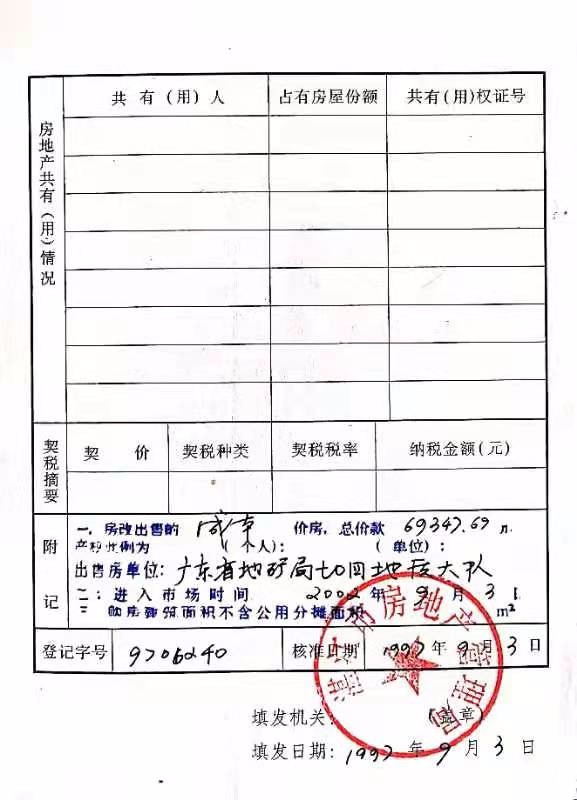 房地产共有(用)情况
共有(用)人 占有房屋份额 共有(用)权证号
契税摘要
契价 契税种类 契税税率 纳税金额(元)
附记
一、房改出售的 成本 价房，总价款 69347.69 元
产权比例为 (个人)： (单位)：
出售房单位：广东省地矿局七〇四地质大队
二：进入市场时间 2002年9月3日
三 购房建筑面积不含公用分摊面积 m²
登记字号 9706240 核准日期 1997年9月3日
湛江市房地产管理局
填发机关： (盖章)
填发日期：1997年9月3日